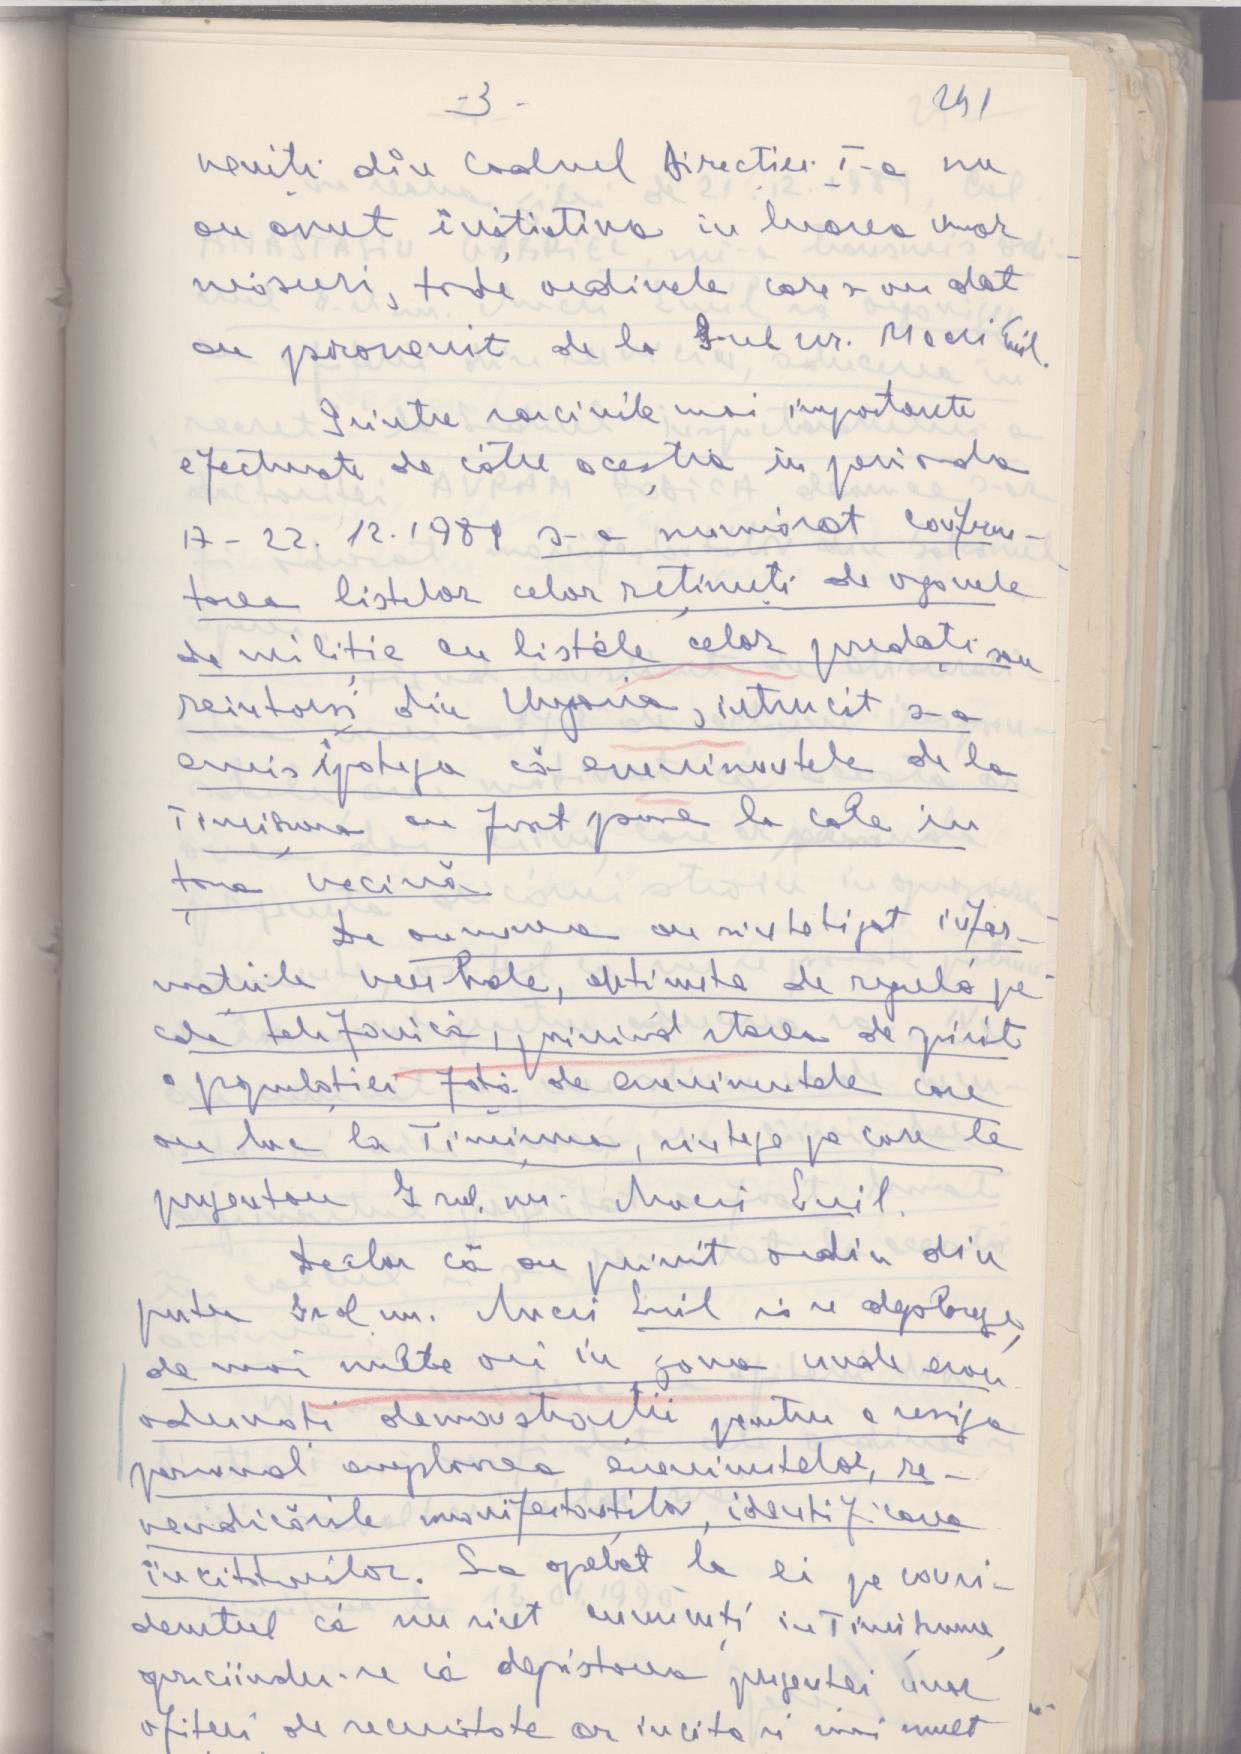 -3-
291
veniți din cadrul Direcției I-a nu
au avut inițiativa in luarea unor
măsuri, toate ordinele care s-au dat
au provenit de la Gral mr. Macri Emil.
Printre sarcinile mai importante
efectuate de către aceștia in perioada
17-22.12.1989 s-a numărat confrun-
tarea listelor celor reținuți de organele
de miliție cu listele celor predați sau
reintorși din Ungaria, intrucit s-a
emis ipoteza că evenimentele de la
Timișoara au fost puse la cale in
țara vecină
De asemenea au sintetizat infor-
mațiile verbale, obținute de regulă pe
cale telefonică, privind starea de spirit
a populației față de evenimentele care
au loc la Timișoara, sinteze pe care le
prezentau Gral. mr. Macri Emil.
Declar că au primit ordin din
partea Gral mr. Macri Emil să se deplaseze,
de mai multe ori in zona unde erau
adunați demonstranții pentru a sesiza
personal amploarea evenimentelor, re-
vendicările manifestanților, identificarea
incitatorilor. S-a apelat la ei pe consi-
derentul că nu sint cunoscuți in Timișoara,
apreciindu-se că depistarea prezenței unor
ofițeri de securitate ar incita și mai mult